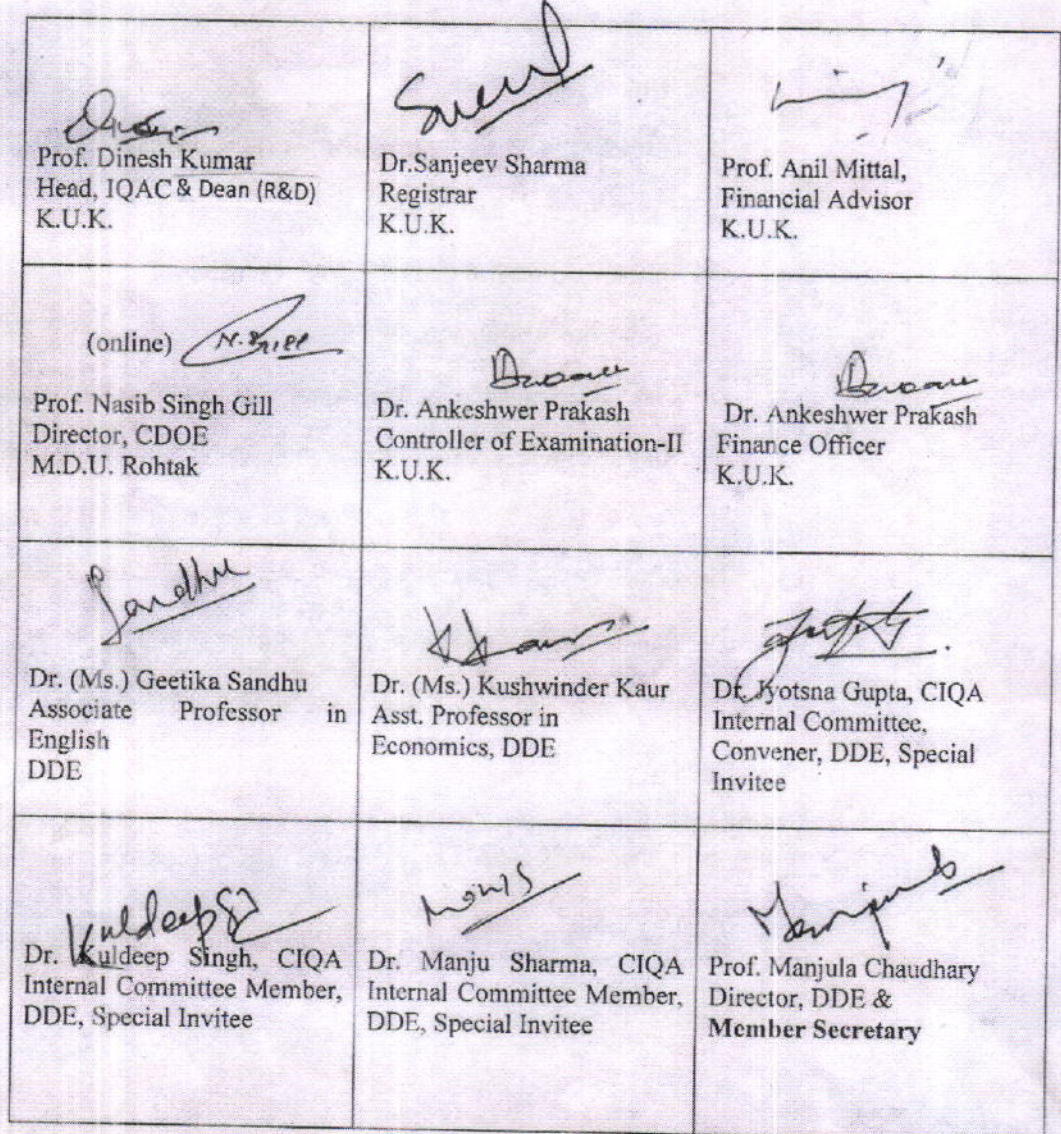 Prof. Dinesh Kumar
Head, IQAC & Dean (R&D)
K.U.K.
Dr.Sanjeev Sharma
Registrar
K.U.K.
Prof. Anil Mittal,
Financial Advisor
K.U.K.
(online) N.S.Gill
Prof. Nasib Singh Gill
Director, CDOE
M.D.U. Rohtak
Dr. Ankeshwer Prakash
Controller of Examination-II
K.U.K.
Dr. Ankeshwer Prakash
Finance Officer
K.U.K.
Sandhu
Dr. (Ms.) Geetika Sandhu
Associate Professor in
English
DDE
Dr. (Ms.) Kushwinder Kaur
Asst. Professor in
Economics, DDE
Dr. Jyotsna Gupta, CIQA
Internal Committee,
Convener, DDE, Special
Invitee
Kuldeep
Dr. Kuldeep Singh, CIQA
Internal Committee Member,
DDE, Special Invitee
Dr. Manju Sharma, CIQA
Internal Committee Member,
DDE, Special Invitee
Prof. Manjula Chaudhary
Director, DDE &
Member Secretary